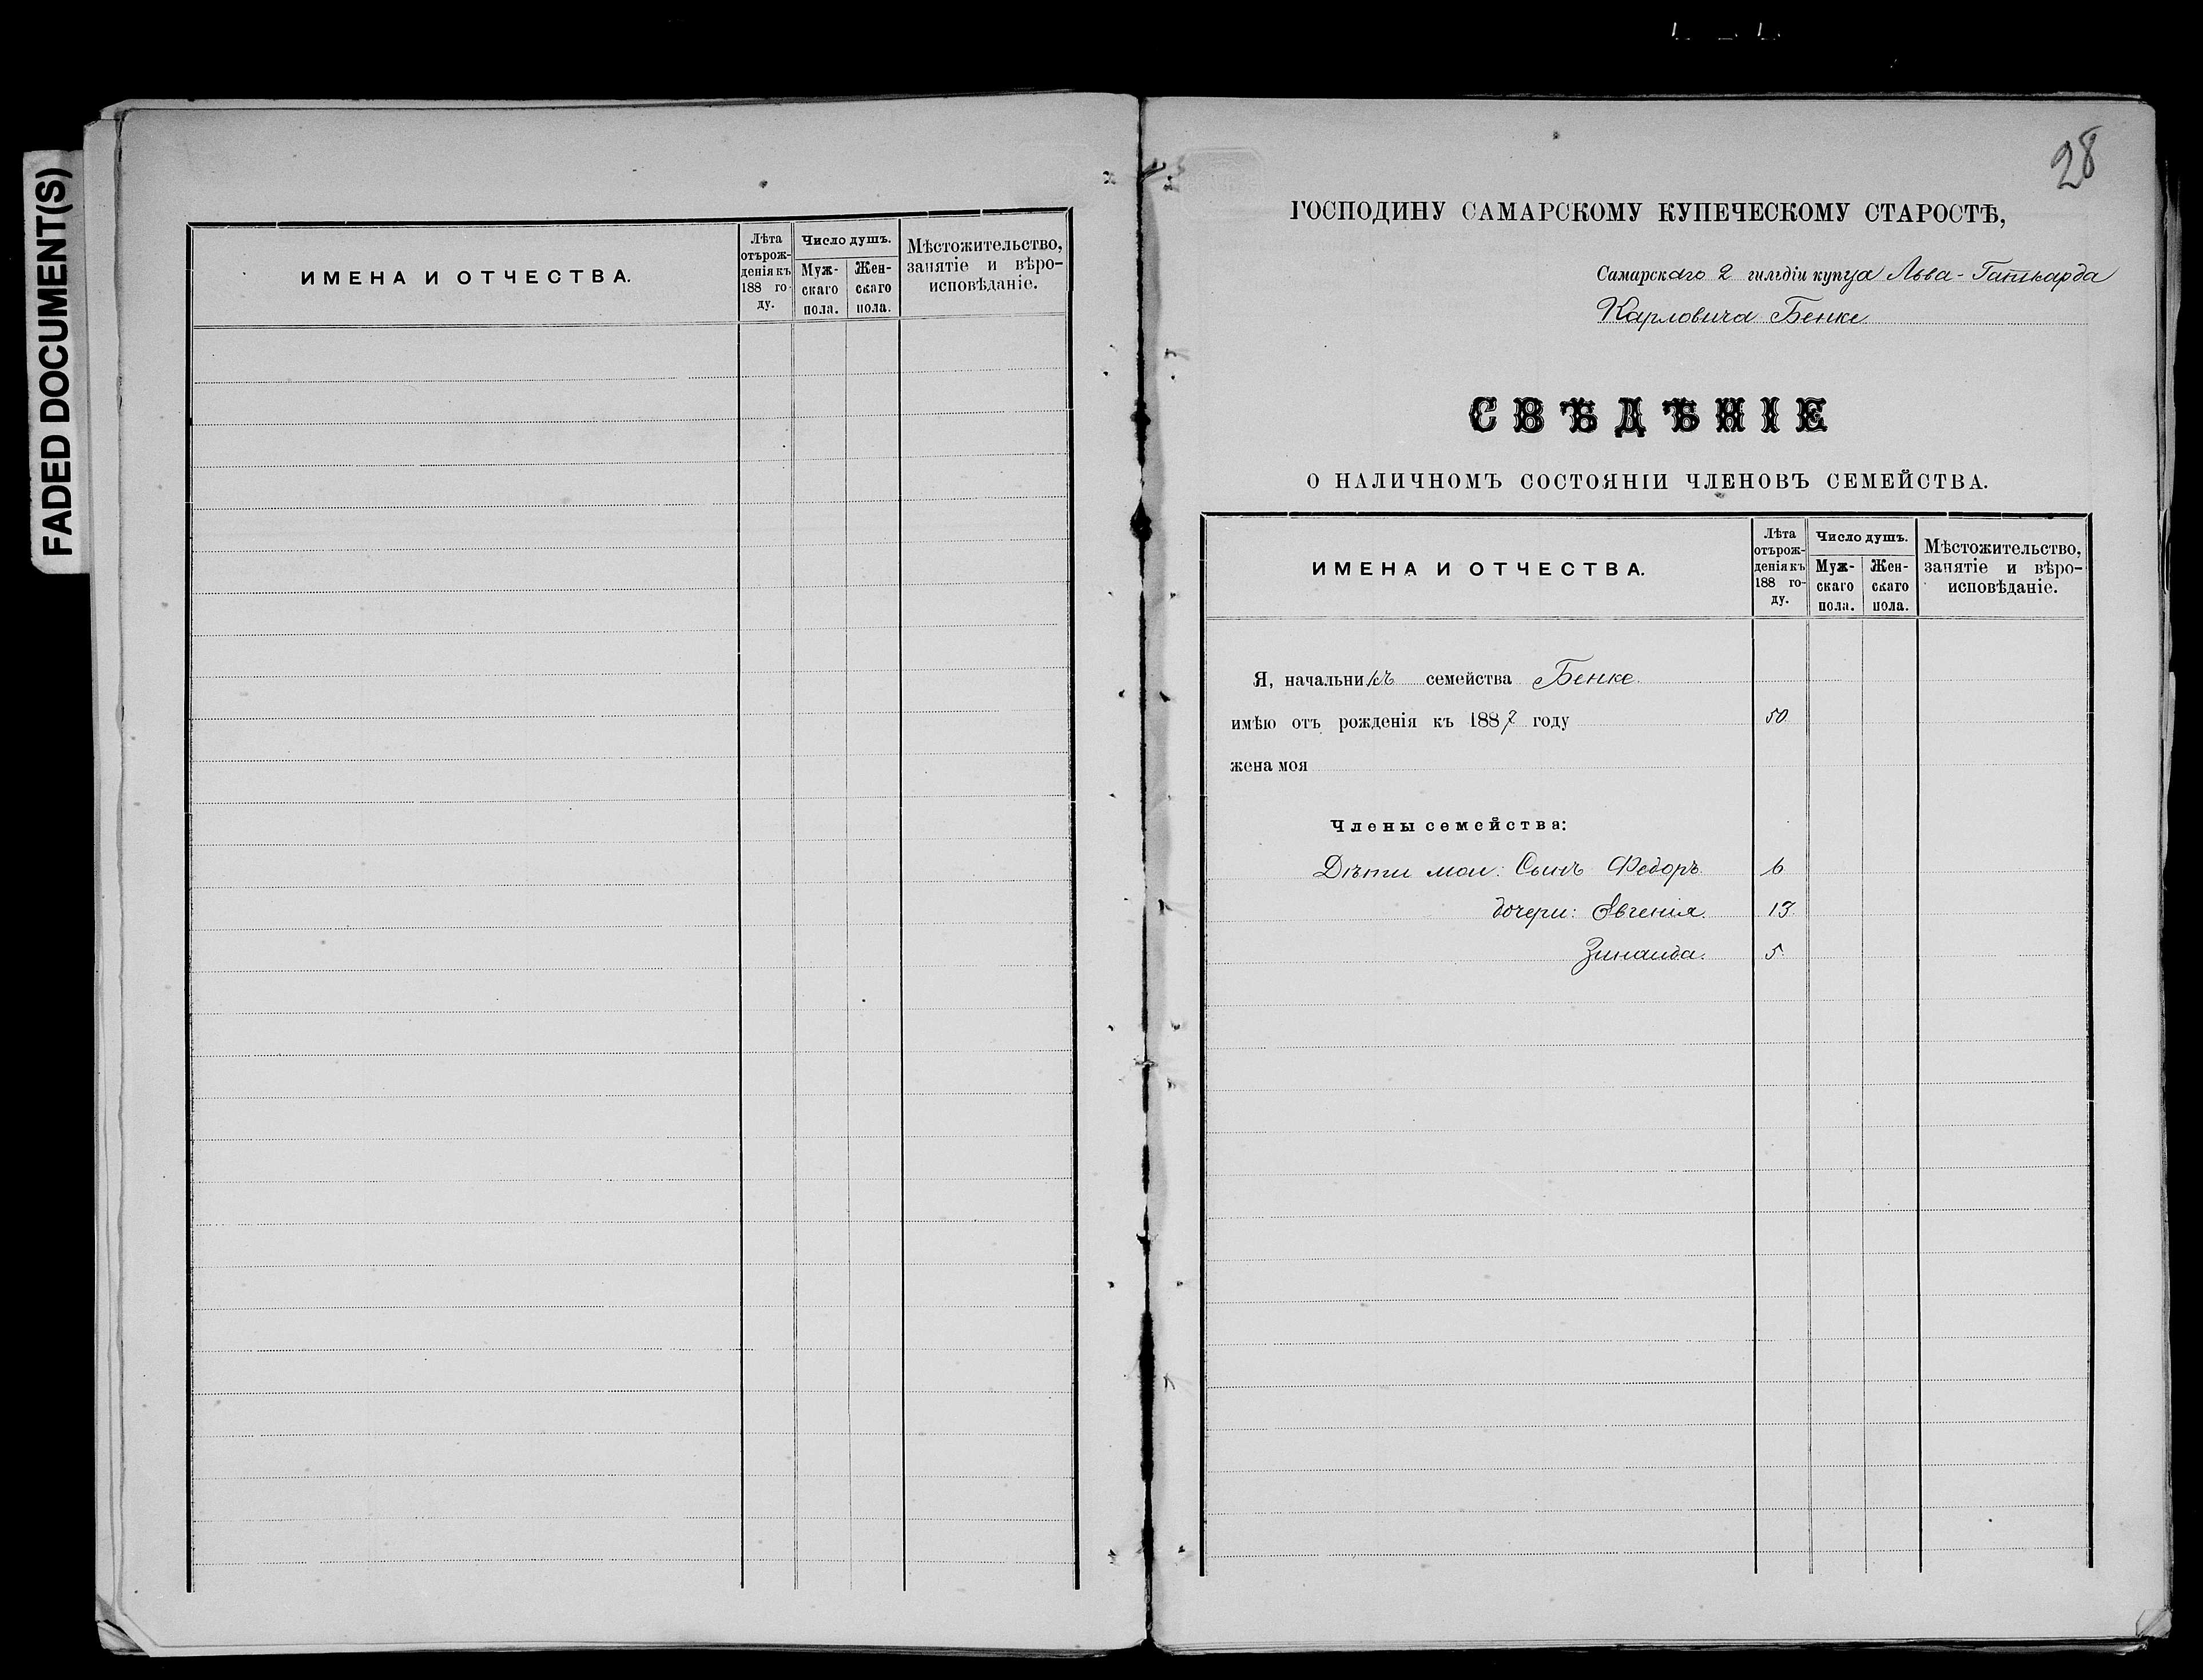 FADED DOCUMENT(S)
ИМЕНА И ОТЧЕСТВА.
Лѣта
отърож-
денія къ
188 го-
ду.
Число душъ.
Муж-
скаго
пола.
Жен-
скаго
пола.
Мѣстожительство,
занятіе и вѣро-
исповѣданіе.
28
ГОСПОДИНУ САМАРСКОМУ КУПЕЧЕСКОМУ СТАРОСТѢ,
Самарскаго 2 гильдіи купца Льва-Гатгарда
Карловича Бенке
СВѢДѢНІЕ
О НАЛИЧНОМЪ СОСТОЯНІИ ЧЛЕНОВЪ СЕМЕЙСТВА.
ИМЕНА И ОТЧЕСТВА.
Лѣта
отърож-
денія къ
188 го-
ду.
Число душъ.
Муж-
скаго
пола.
Жен-
скаго
пола.
Мѣстожительство,
занятіе и вѣро-
исповѣданіе.
Я, начальникъ семейства Бенке.
имѣю отъ рожденія къ 1887 году 50
жена моя
Члены семейства:
Дѣти мои: Сынъ Федоръ 6
дочери: Евгенія. 13.
Зинаида. 5.